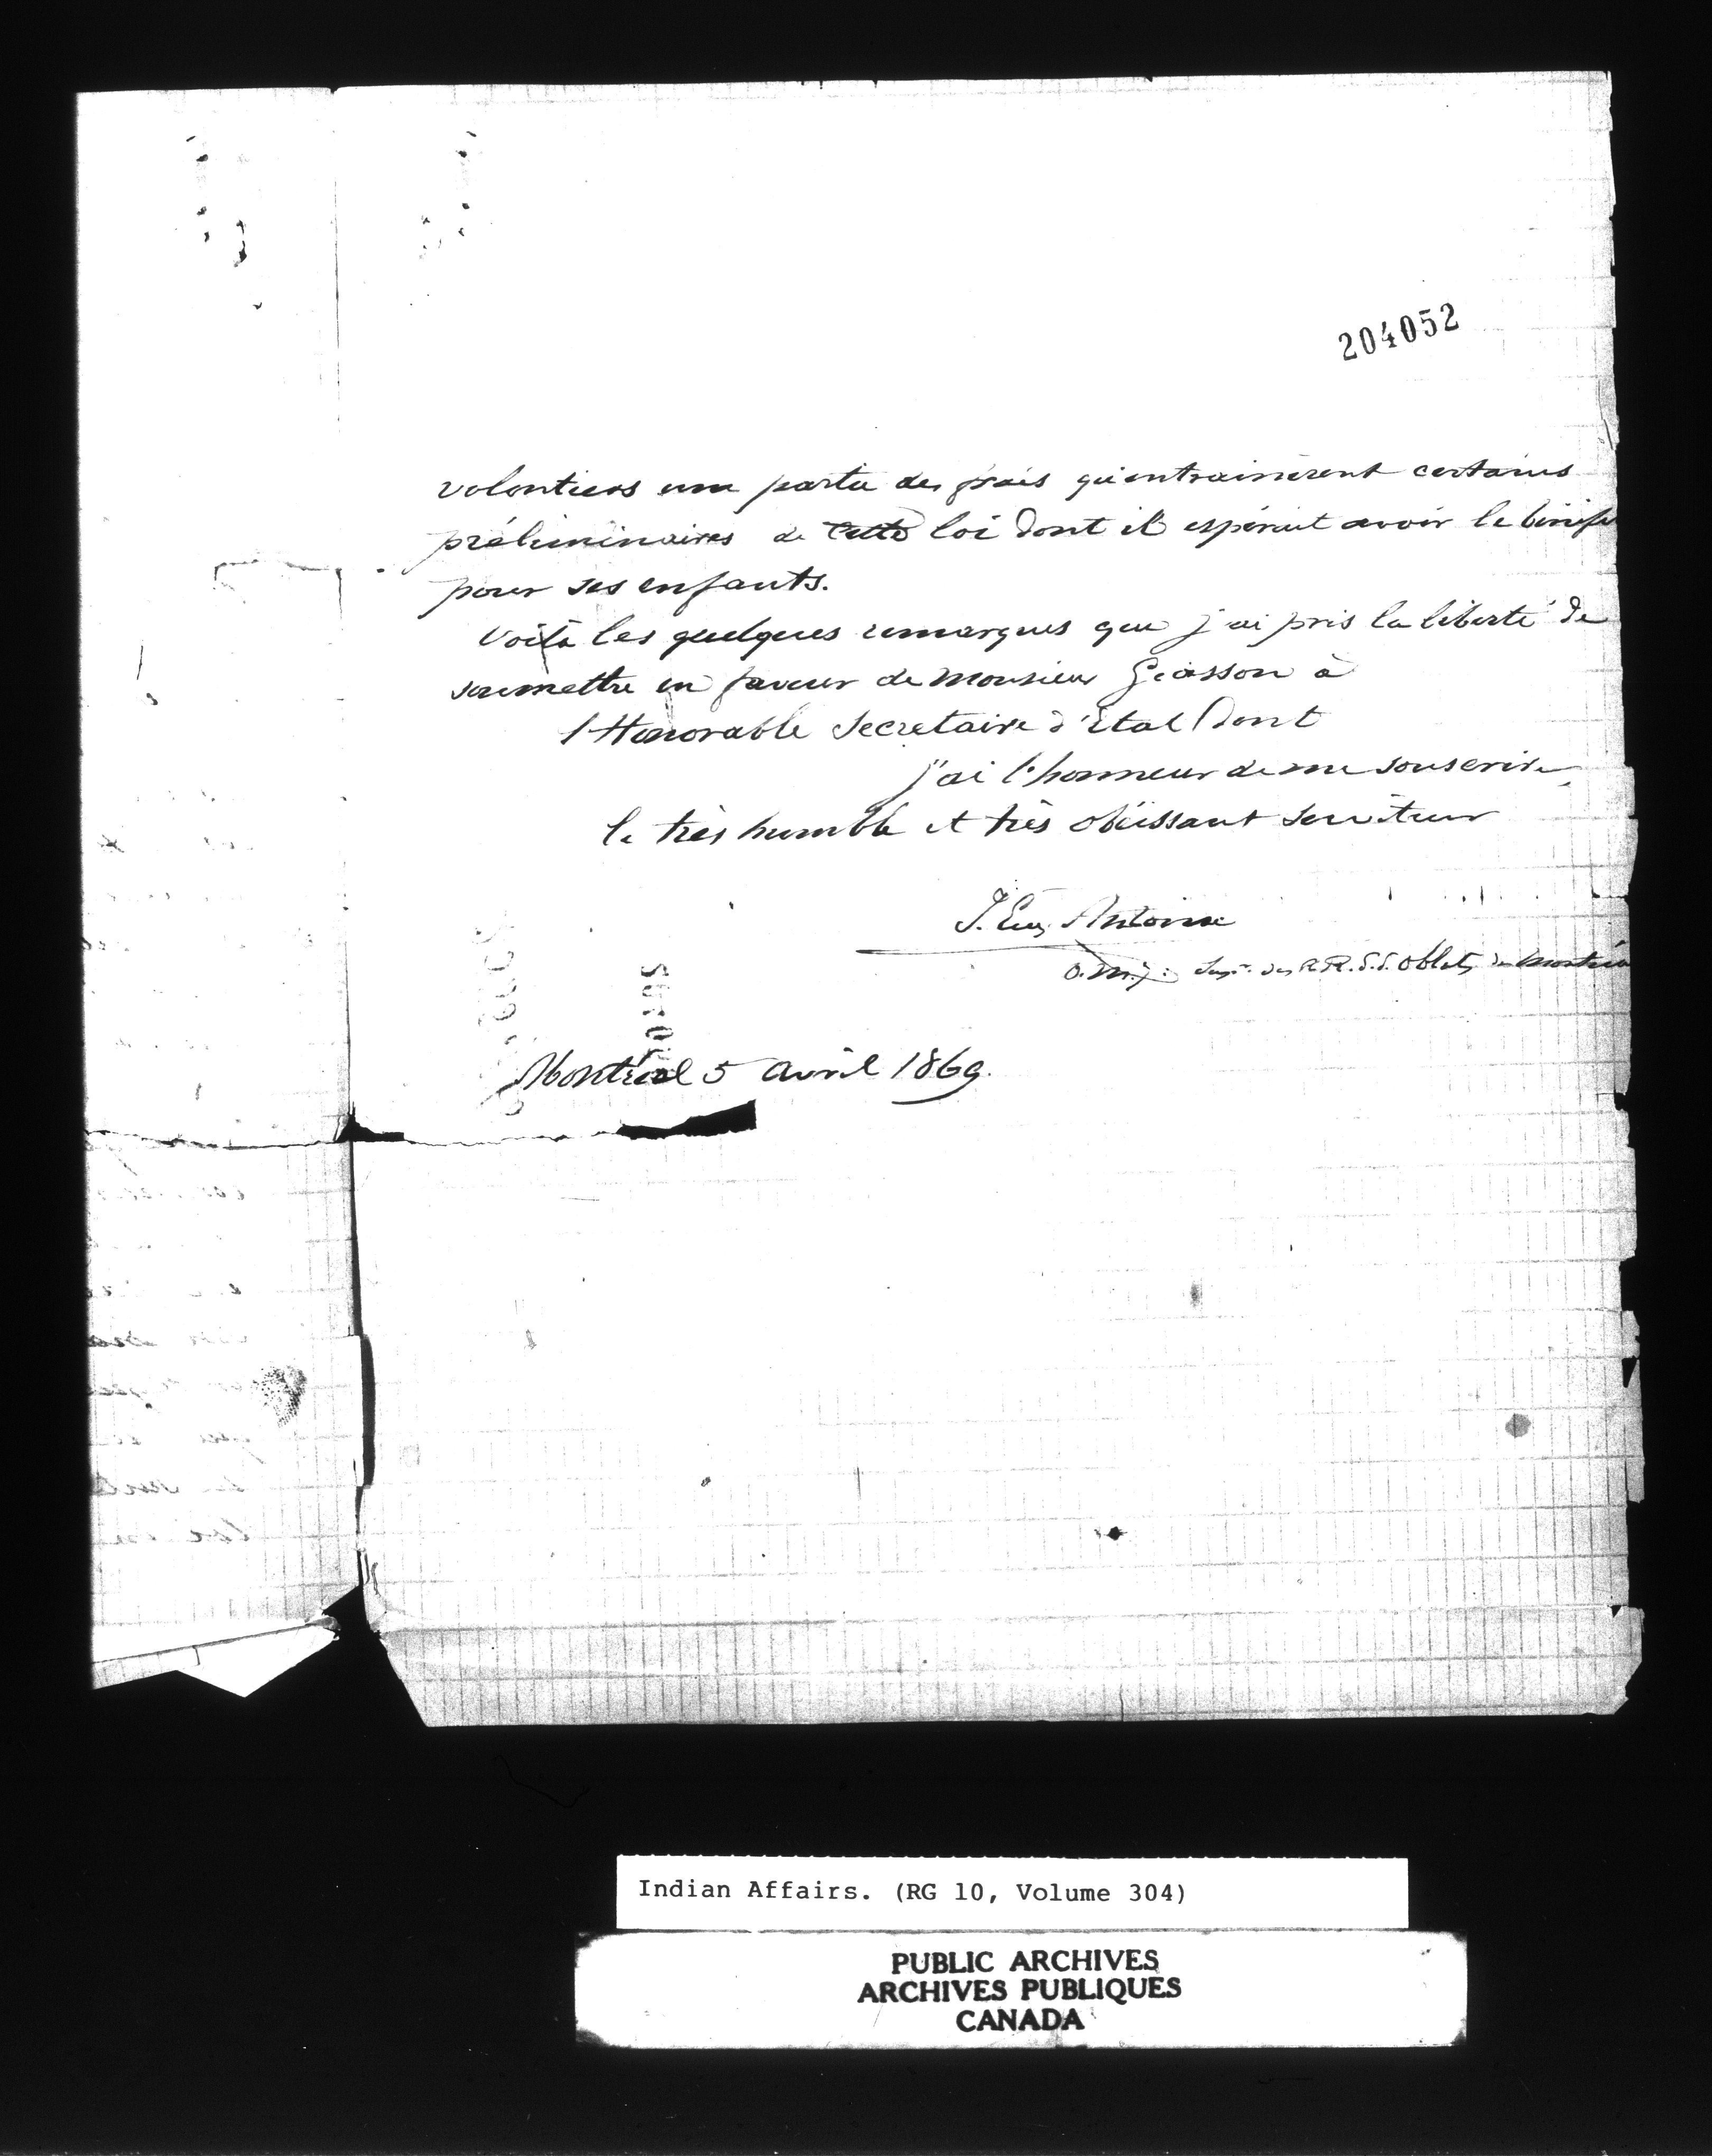 204052
volontiers une partie des frais qu'entrainèrent certains
préliminaires de cette loi dont il espérait avoir le bénéfice
pour ses enfants.
Voilà les quelques remarques que j'ai pris la liberté de
soumettre en faveur de Monsieur Giasson à
l'Honorable Secretaire d'Etat dont
j'ai l'honneur de me souscrire,
le très humble et très obéissant serviteur
J. Eug. Antoine
o.m.j. Supr. des RR. P.P. Oblats de Montréal
Montréal 5 avril 1869.
Indian Affairs. (RG 10, Volume 304)
PUBLIC ARCHIVES
ARCHIVES PUBLIQUES
CANADA